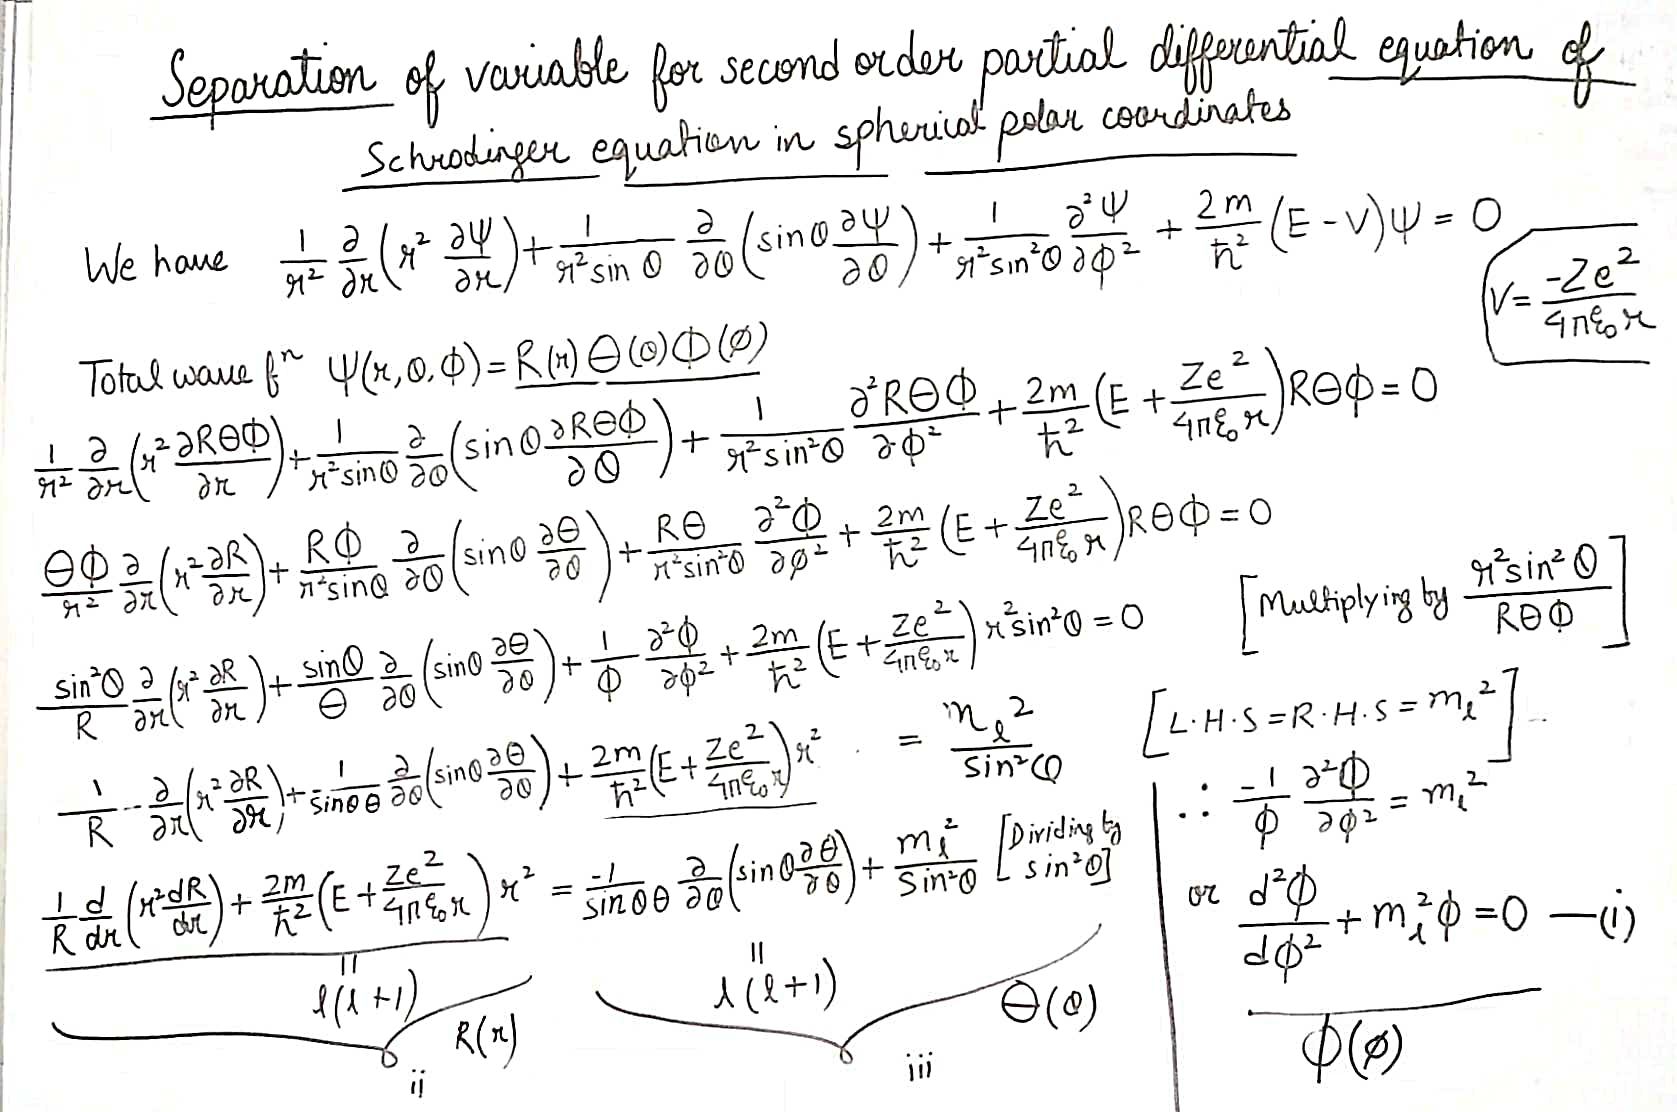 Separation of variable for second order partial differential equation of
Schrodinger equation in spherical polar coordinates
We have 1/r² ∂/∂r (r² ∂Ψ/∂r) + 1/(r² sin θ) ∂/∂θ (sin θ ∂Ψ/∂θ) + 1/(r² sin²θ) ∂²Ψ/∂ϕ² + 2m/ħ² (E - V)Ψ = 0
V = -Ze²/(4πε₀r)
Total wave fⁿ Ψ(r, θ, ϕ) = R(r) Θ(θ) Φ(ϕ)
1/r² ∂/∂r (r² ∂RΘΦ/∂r) + 1/(r² sin θ) ∂/∂θ (sin θ ∂RΘΦ/∂θ) + 1/(r² sin²θ) ∂²RΘΦ/∂ϕ² + 2m/ħ² (E + Ze²/(4πε₀r)) RΘΦ = 0
ΘΦ/r² ∂/∂r (r² ∂R/∂r) + RΦ/(r² sin θ) ∂/∂θ (sin θ ∂Θ/∂θ) + RΘ/(r² sin²θ) ∂²Φ/∂ϕ² + 2m/ħ² (E + Ze²/(4πε₀r)) RΘΦ = 0
[Multiplying by r² sin²θ/(RΘΦ)]
sin²θ/R ∂/∂r (r² ∂R/∂r) + sin θ/Θ ∂/∂θ (sin θ ∂Θ/∂θ) + 1/Φ ∂²Φ/∂ϕ² + 2m/ħ² (E + Ze²/(4πε₀r)) r² sin²θ = 0
[L.H.S = R.H.S = mₗ²]
1/R ∂/∂r (r² ∂R/∂r) + 1/(sin θ Θ) ∂/∂θ (sin θ ∂Θ/∂θ) + 2m/ħ² (E + Ze²/(4πε₀r)) r² = mₗ²/sin²θ
1/R d/dr (r² dR/dr) + 2m/ħ² (E + Ze²/(4πε₀r)) r² = -1/(sin θ Θ) ∂/∂θ (sin θ ∂Θ/∂θ) + mₗ²/sin²θ [Dividing by sin²θ]
|| l(l+1) R(r) ii
|| l(l+1) Θ(θ) iii
∴ -1/Φ ∂²Φ/∂ϕ² = mₗ²
or d²Φ/dϕ² + mₗ²Φ = 0 —(i)
Φ(ϕ)